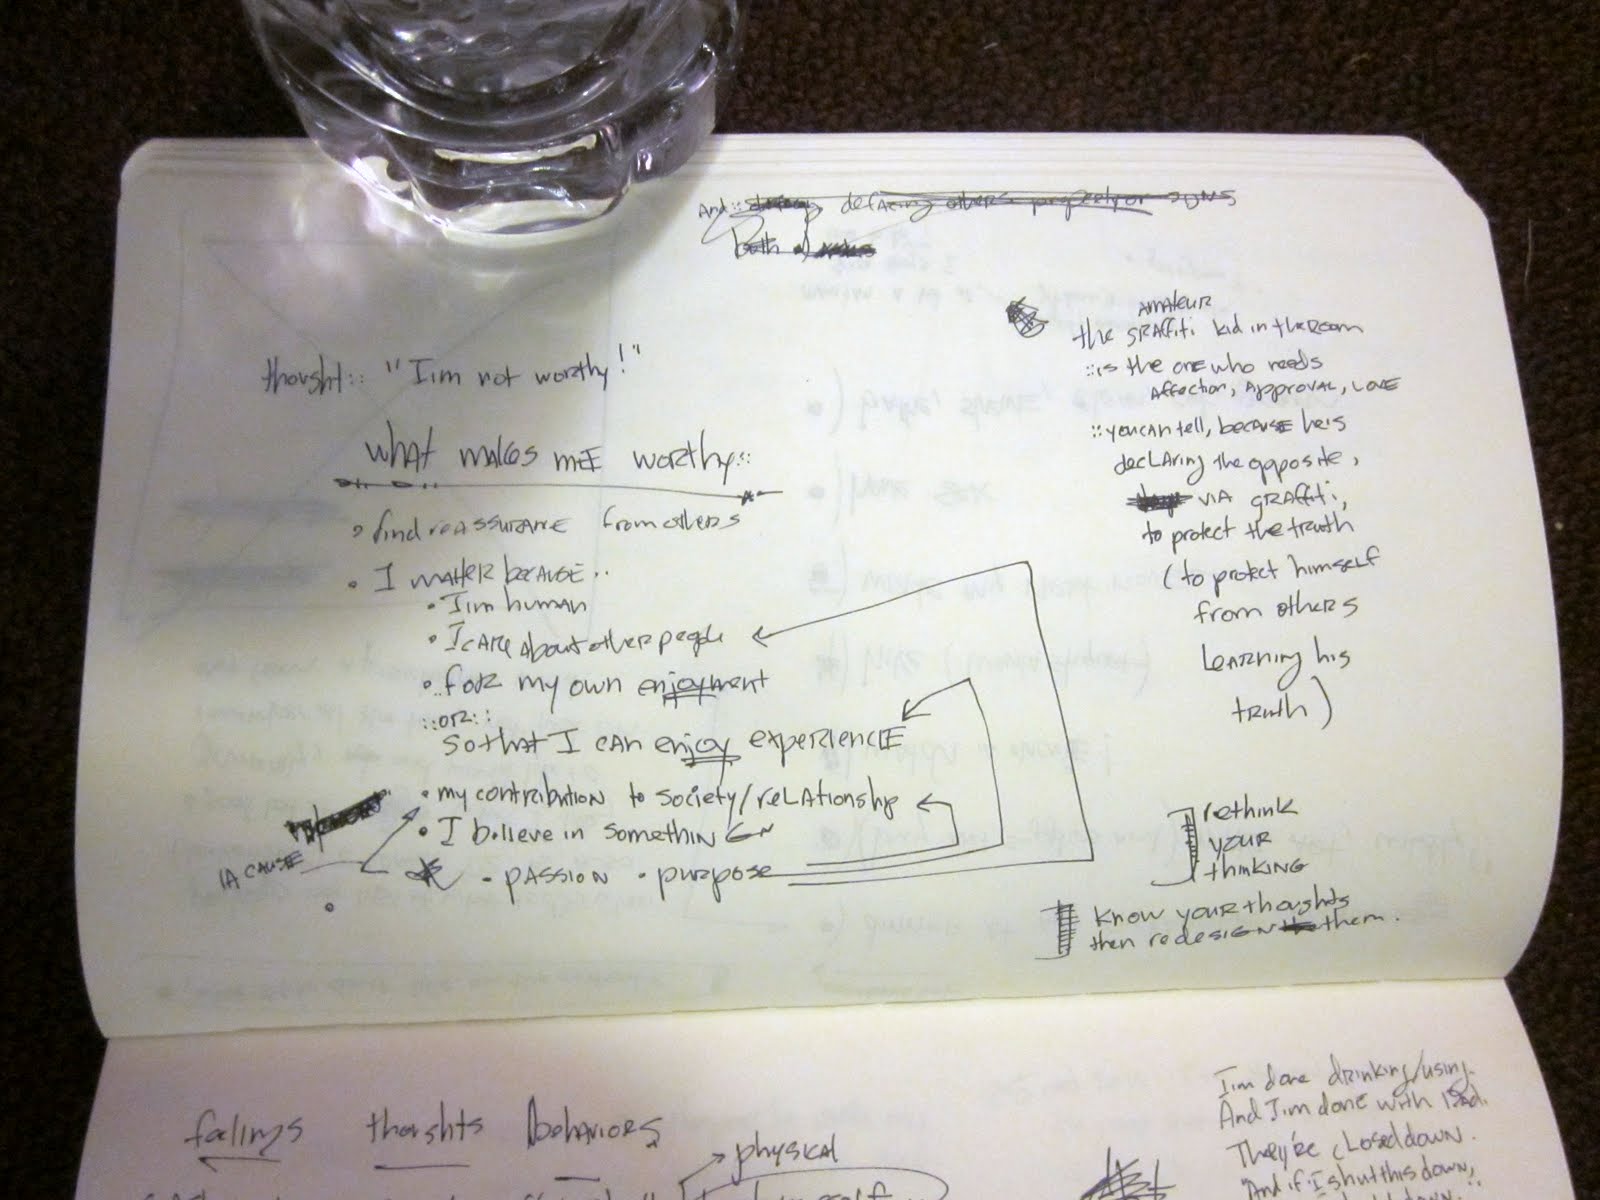 And:: defacing others property or
both
thought:: "I'm not worthy!"
what makes mE worthy::
find reassurance from others
I matter because..
I'm human
I care about other people
for my own enjoyment
::or::
so that I can enjoy experiencE
my contribution to society/relationship
I believe in somethinG
A CAUSE
passion • purpose
AMATEUR
the graffiti kid in the room
::is the one who needs
Affection, Approval, Love
::you can tell, because he is
declaring the opposite,
VIA graffiti,
to protect the truth
(to protect himself
from others
Learning his
truth)
rethink
your
thinking
know your thoughts
then redesign them.
feelings thoughts behaviors
physical
I'm done drinking/using.
And I'm done with
They're closed down.
And if I shut this down,